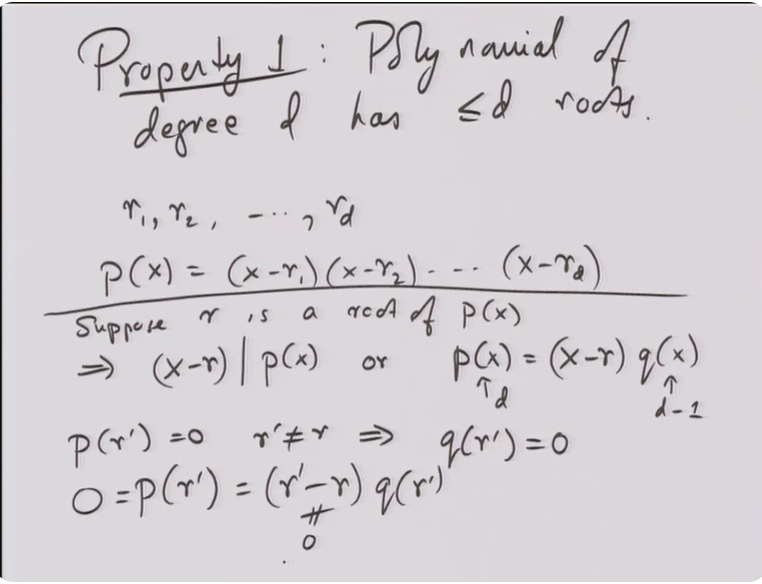 Property 1 : Polynamial of
degree d has ≤d roots.
r₁, r₂, ---, r_d
p(x) = (x-r₁)(x-r₂)---- (x-r_d)
Suppose r is a root of p(x)
⇒ (x-r) | p(x) or p(x) = (x-r) q(x)
↑d ↑d-1
p(r') =0 r'≠r ⇒ q(r')=0
0 =p(r') = (r'-r) q(r')
≠
0